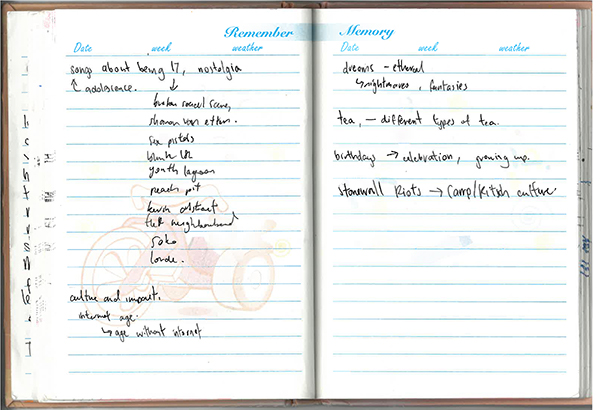 Remember
Date week weather
songs about being 17, nostalgia
↑ adolescence. ↓
broken social scene,
sharon van etten.
sex pistols
blink 182
youth lagoon
peach pit
kevin abstract
the neighbourhood
soko
lorde.
culture and impact.
internet age.
↳ age without internet
Memory
Date week weather
dreams - ethereal
↳ nightmares, fantasies
tea, - different types of tea.
birthdays → celebration, growing up.
Stonewall Riots → Camp/Kitsch culture